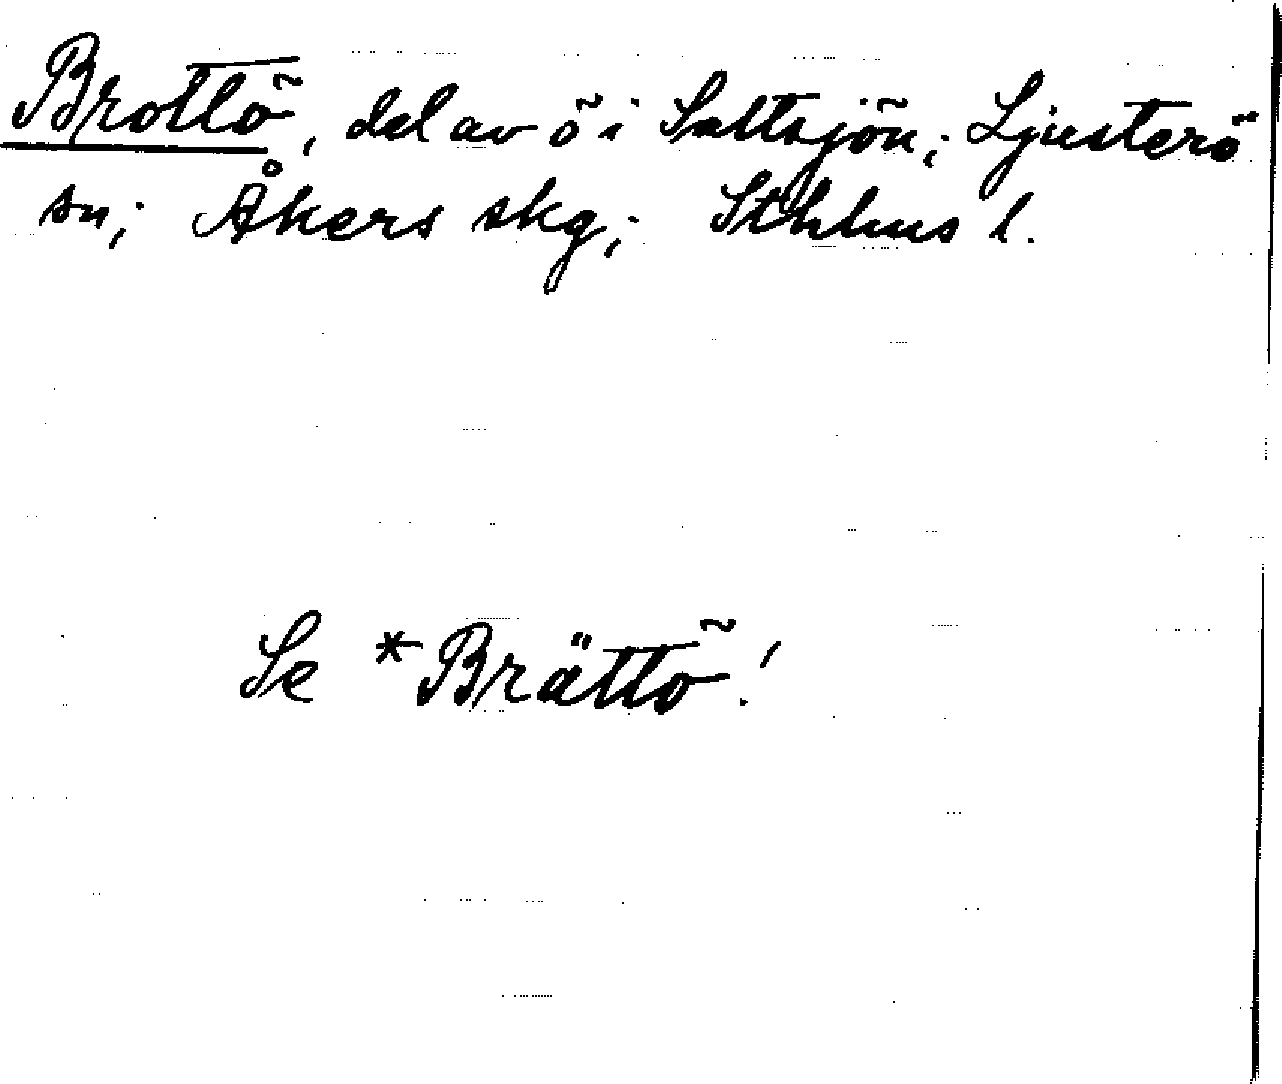 Brottö, del av ö i Saltsjön; Ljusterö
sn; Åkers skg; Sthlms l.
Se *Brättö!